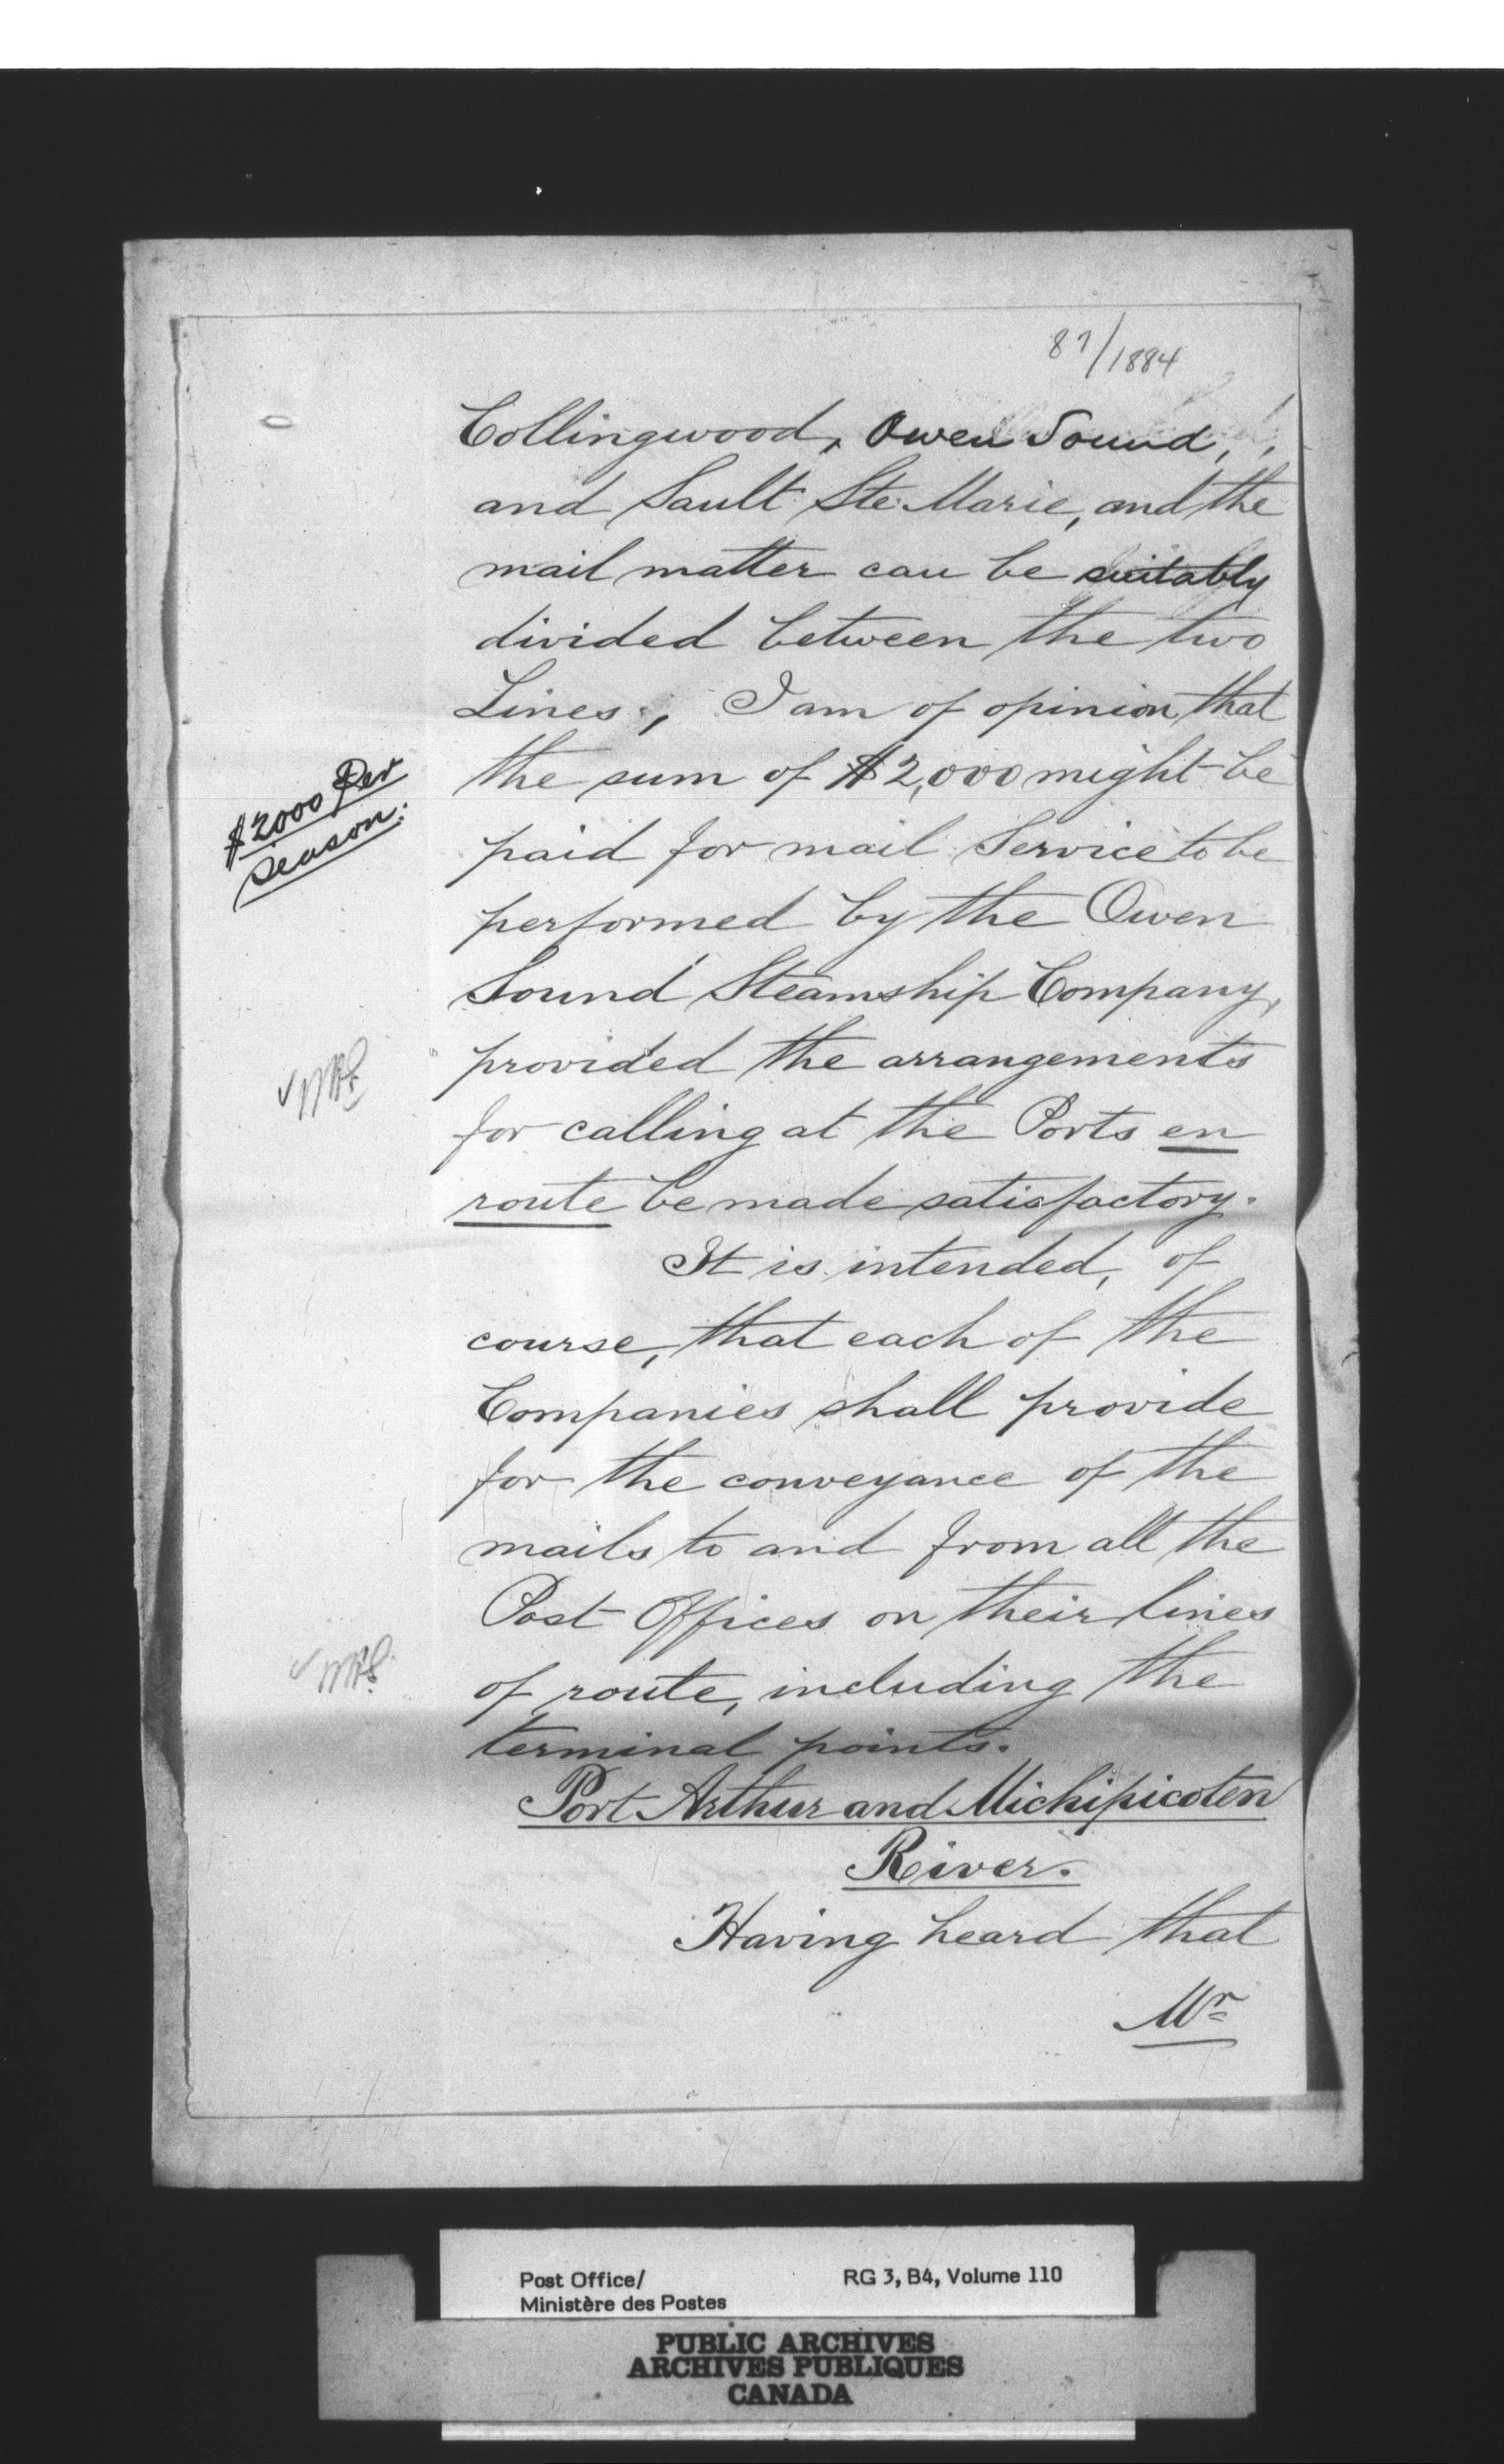 87/1884
Collingwood, Owen Sound,
and Sault Ste. Marie, and the
mail matter can be suitably
divided between the two
Lines, I am of opinion that
the sum of $2,000 might be
$2000 Per
season.
paid for mail Service to be
performed by the Owen
Sound Steamship Company,
provided the arrangements
for calling at the Ports en
route be made satisfactory.
It is intended, of
course, that each of the
Companies shall provide
for the conveyance of the
mails to and from all the
Post Offices on their lines
of route, including the
terminal points.
Port Arthur and Michipicoten
River.
Having heard that
Mr
Post Office/
Ministère des Postes
RG 3, B4, Volume 110
PUBLIC ARCHIVES
ARCHIVES PUBLIQUES
CANADA